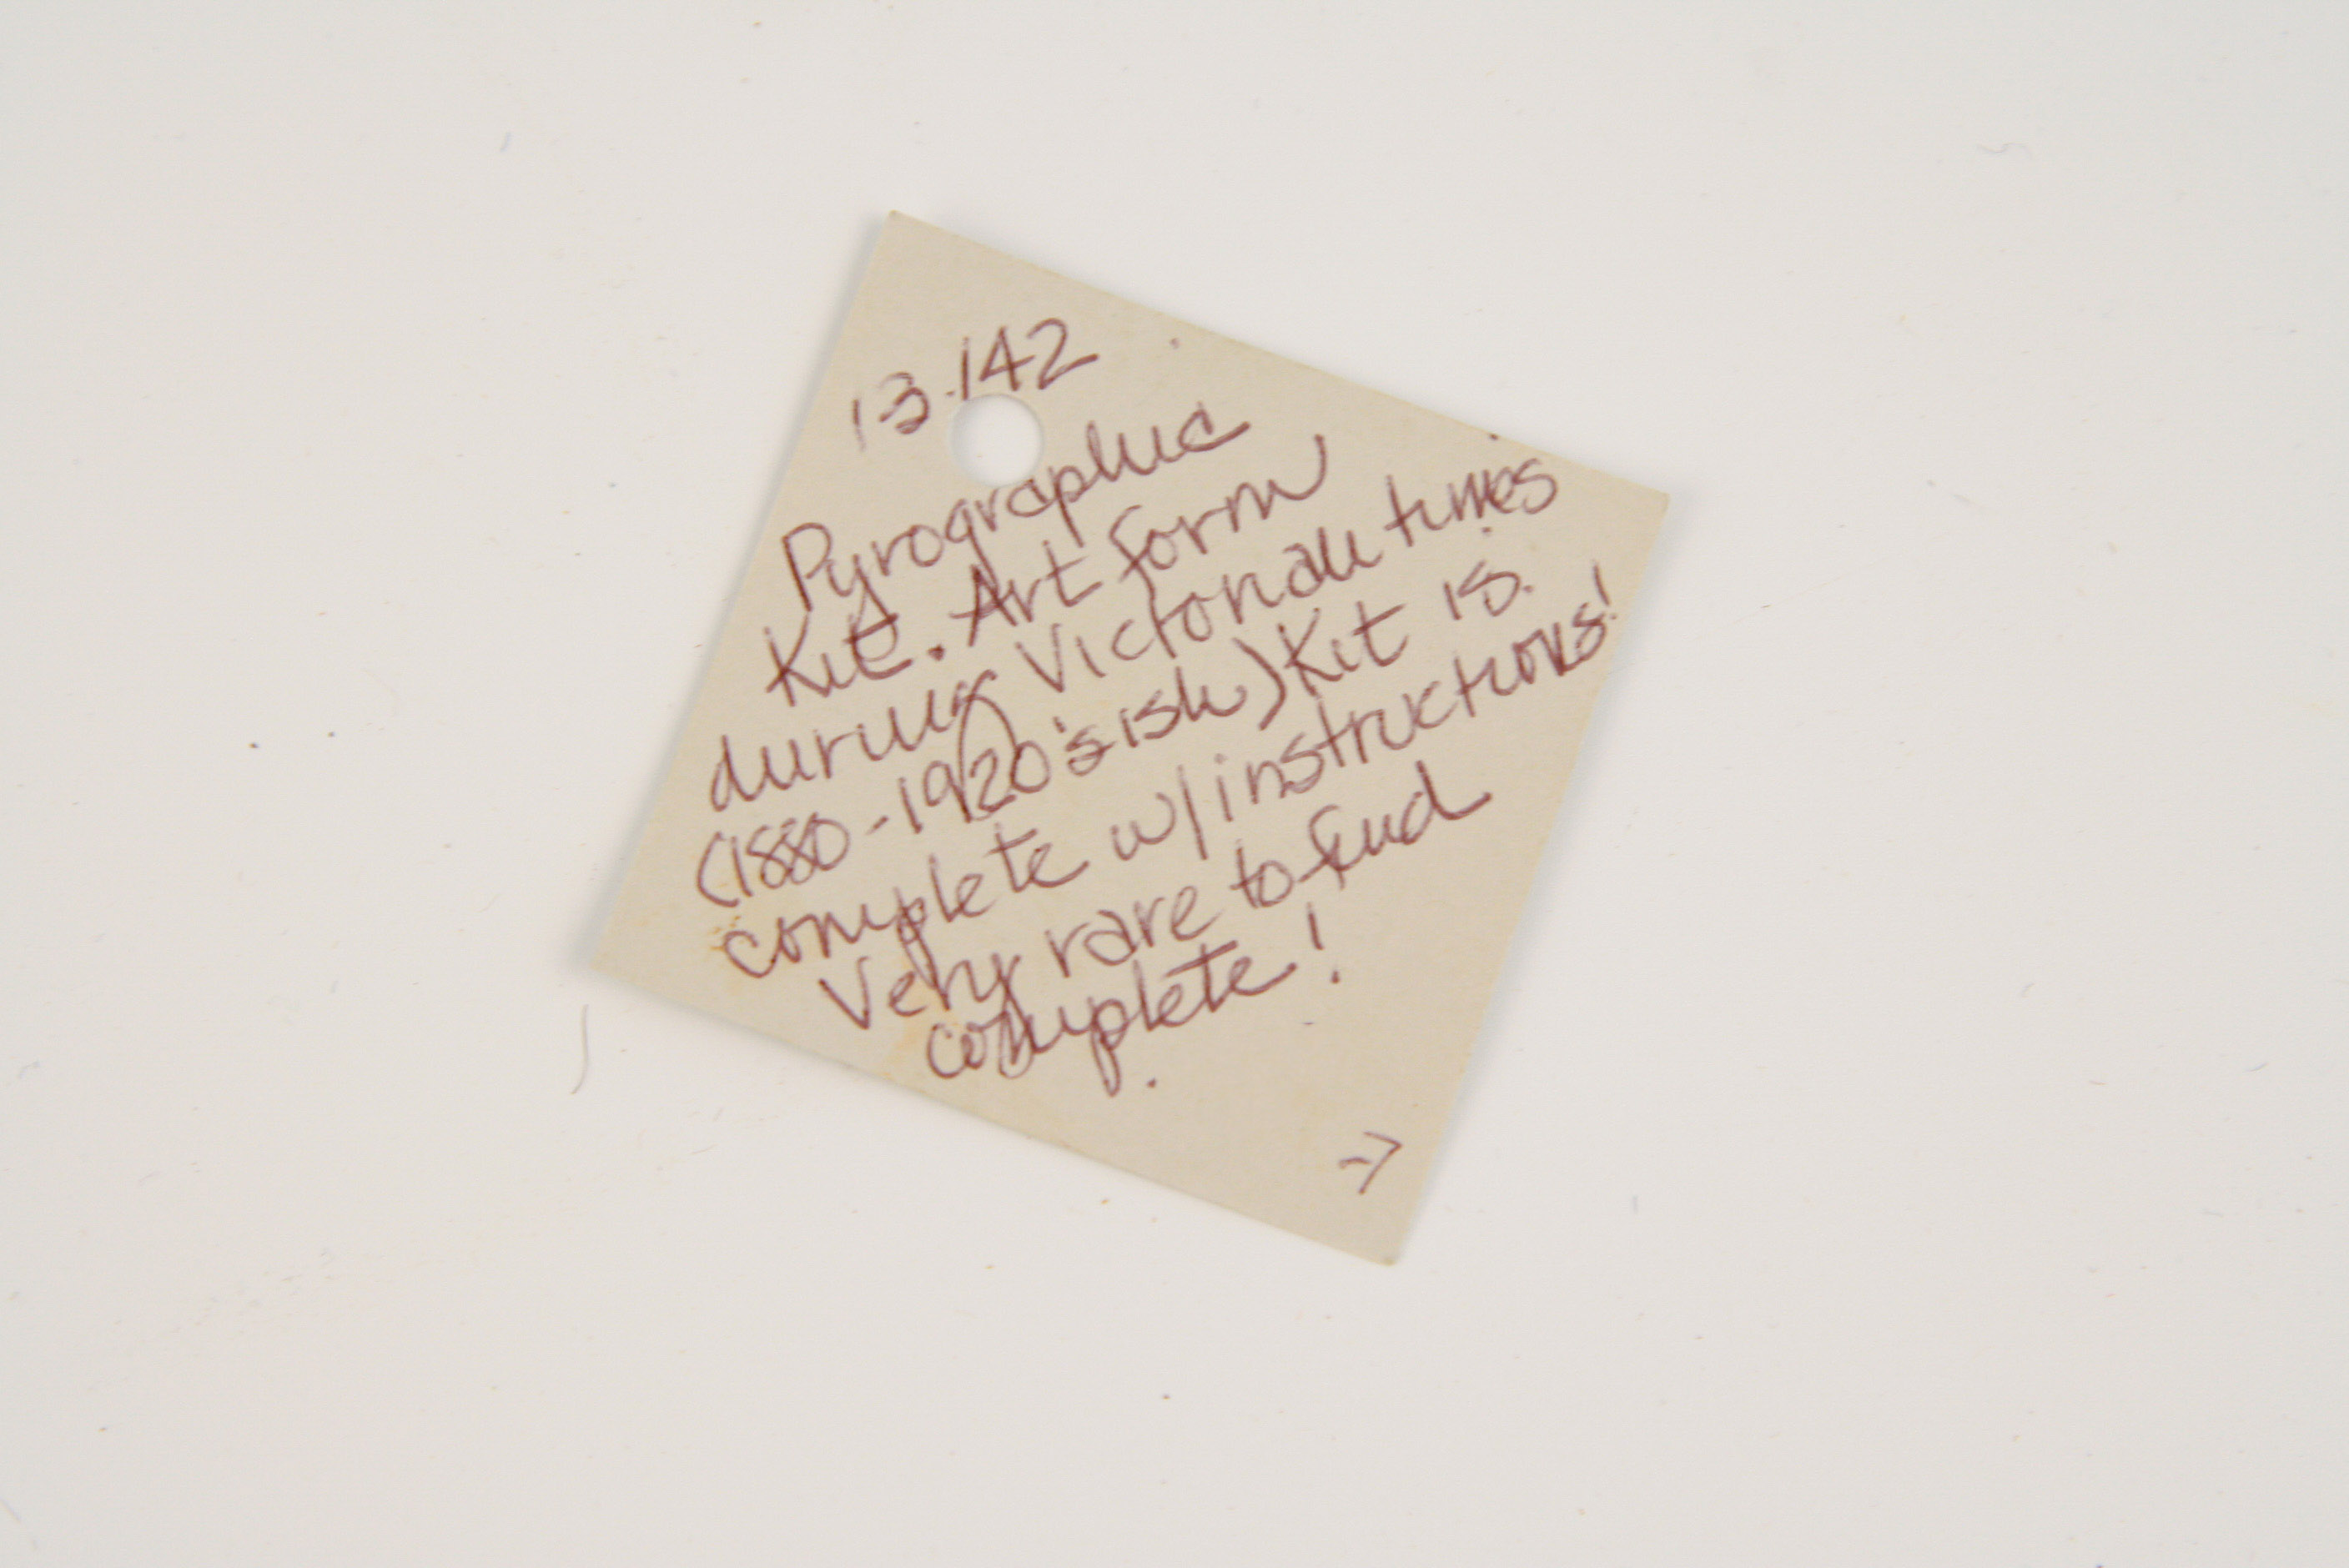 13.142
Pyrographic
Kit. Art form
during Victorian times
(1880-1920's ish) Kit is
complete w/instructions!
Very rare to find
complete!
→